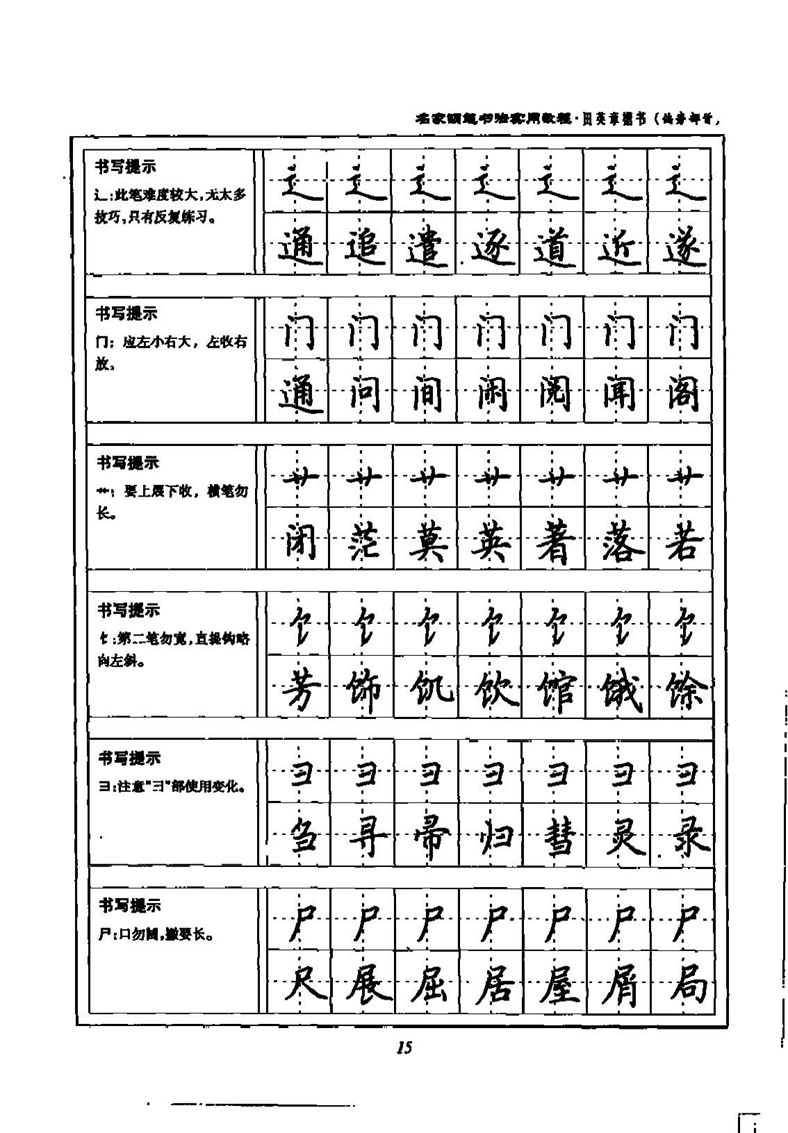 名家钢笔书法实用教程·田英章楷书（偏旁部首）
书写提示
辶:此笔难度较大,无太多
技巧,只有反复练习。
辶 辶 辶 辶 辶 辶 辶
通 追 遣 逐 道 近 遂
书写提示
门：应左小右大，左收右
放。
门 门 门 门 门 门 门
通 问 间 闲 阅 闻 阁
书写提示
艹：要上展下收，横笔勿
长。
艹 艹 艹 艹 艹 艹 艹
闭 茫 莫 英 著 落 若
书写提示
饣:第二笔勿宽,直提钩略
向左斜。
饣 饣 饣 饣 饣 饣 饣
芳 饰 饥 饮 馆 饿 馀
书写提示
彐:注意"彐"部使用变化。
彐 彐 彐 彐 彐 彐 彐
刍 寻 帚 归 彗 灵 录
书写提示
尸:口勿圆,撇要长。
尸 尸 尸 尸 尸 尸 尸
尺 展 屈 居 屋 屑 局
15